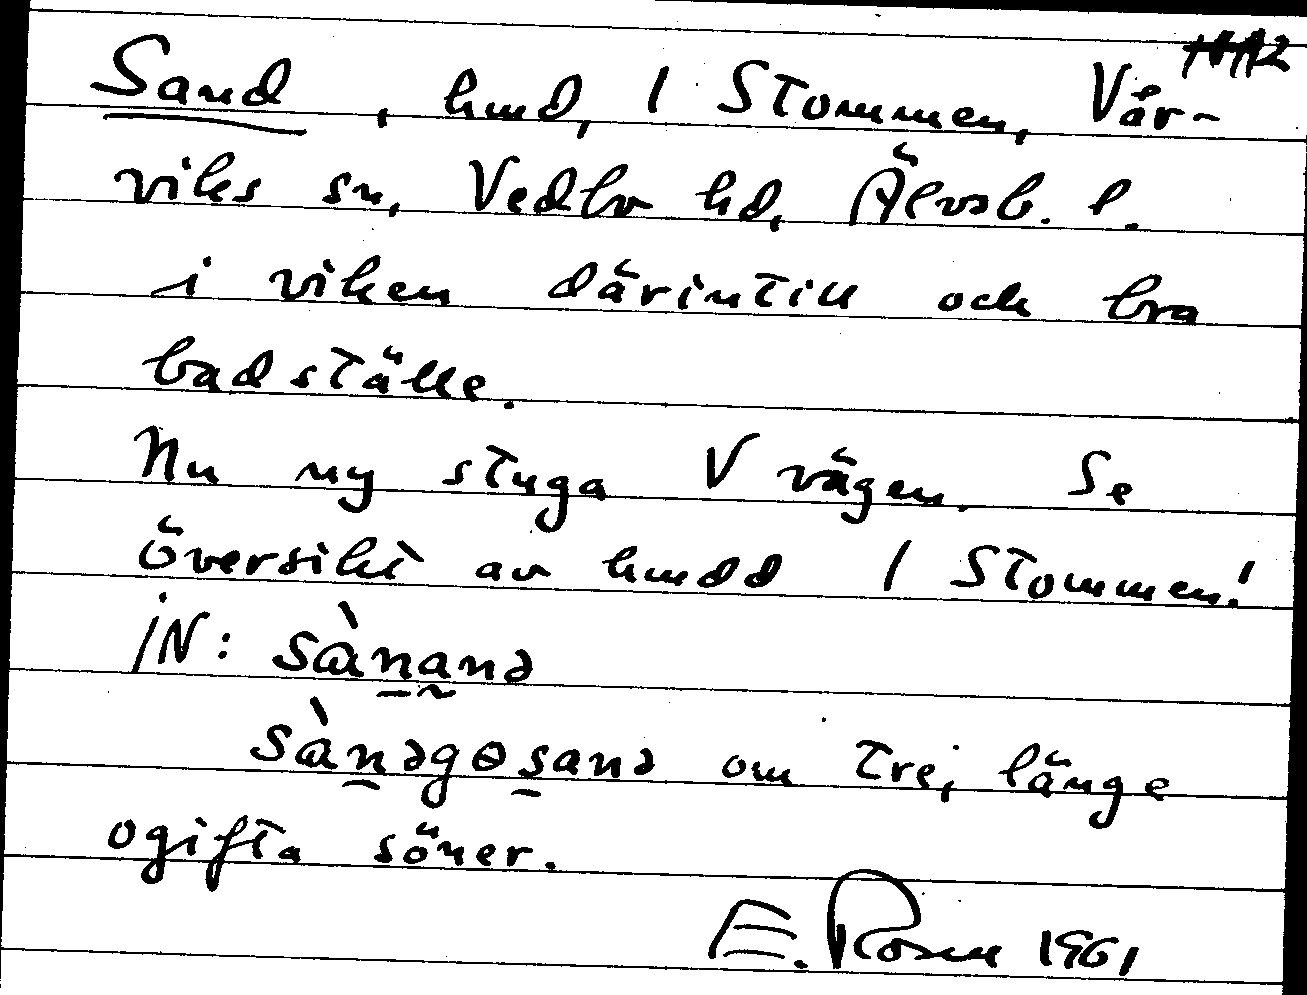 Sand, hmd, 1 Stommen, Vår-
viks sn, Vedbo hd, Älvsb. l.
i viken därintill och bra
badställe.
Nu ny stuga V vägen. Se
översikt av hmdd 1 Stommen!
IN: sànanə
sànəgɵsanə om tre, länge
ogifta söner.
E. Rosén 1961